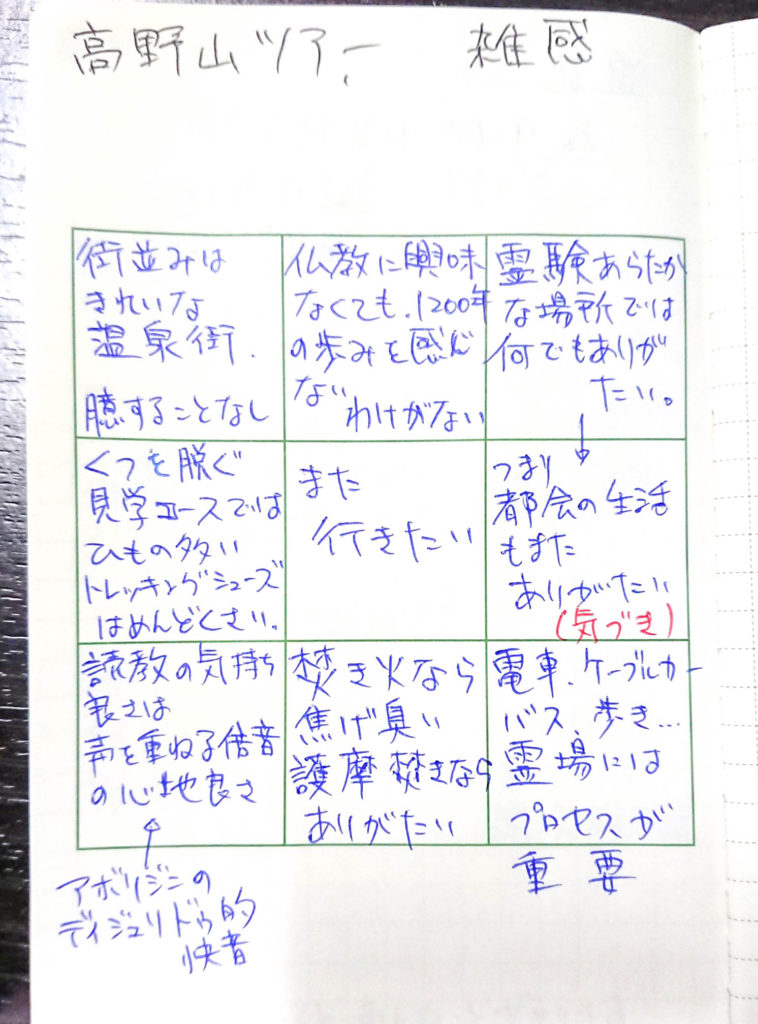 高野山ツアー 雑感
街並みは
きれいな
温泉街.
臆することなし
仏教に興味
なくても、1200年
の歩みを感じ
ない
わけがない
霊験あらたか
な場所では
何でもありが
たい。
くつを脱ぐ
見学コースでは
ひもの多い
トレッキングシューズ
はめんどくさい。
また
行きたい
つまり
都会の生活
もまた
ありがたい
(気づき)
読教の気持ち
良さは
声を重ねる倍音
の心地良さ
焚き火なら
焦げ臭い
護摩焚きなら
ありがたい
電車、ケーブルカー
バス、歩き…
霊場には
プロセスが
重要
アボリジニの
ディジュリドゥ的
快音